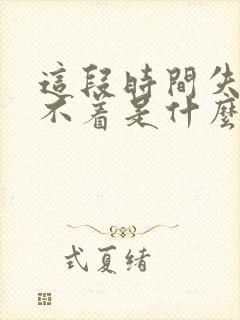 這段時間失
不着是什麼
式夏緒